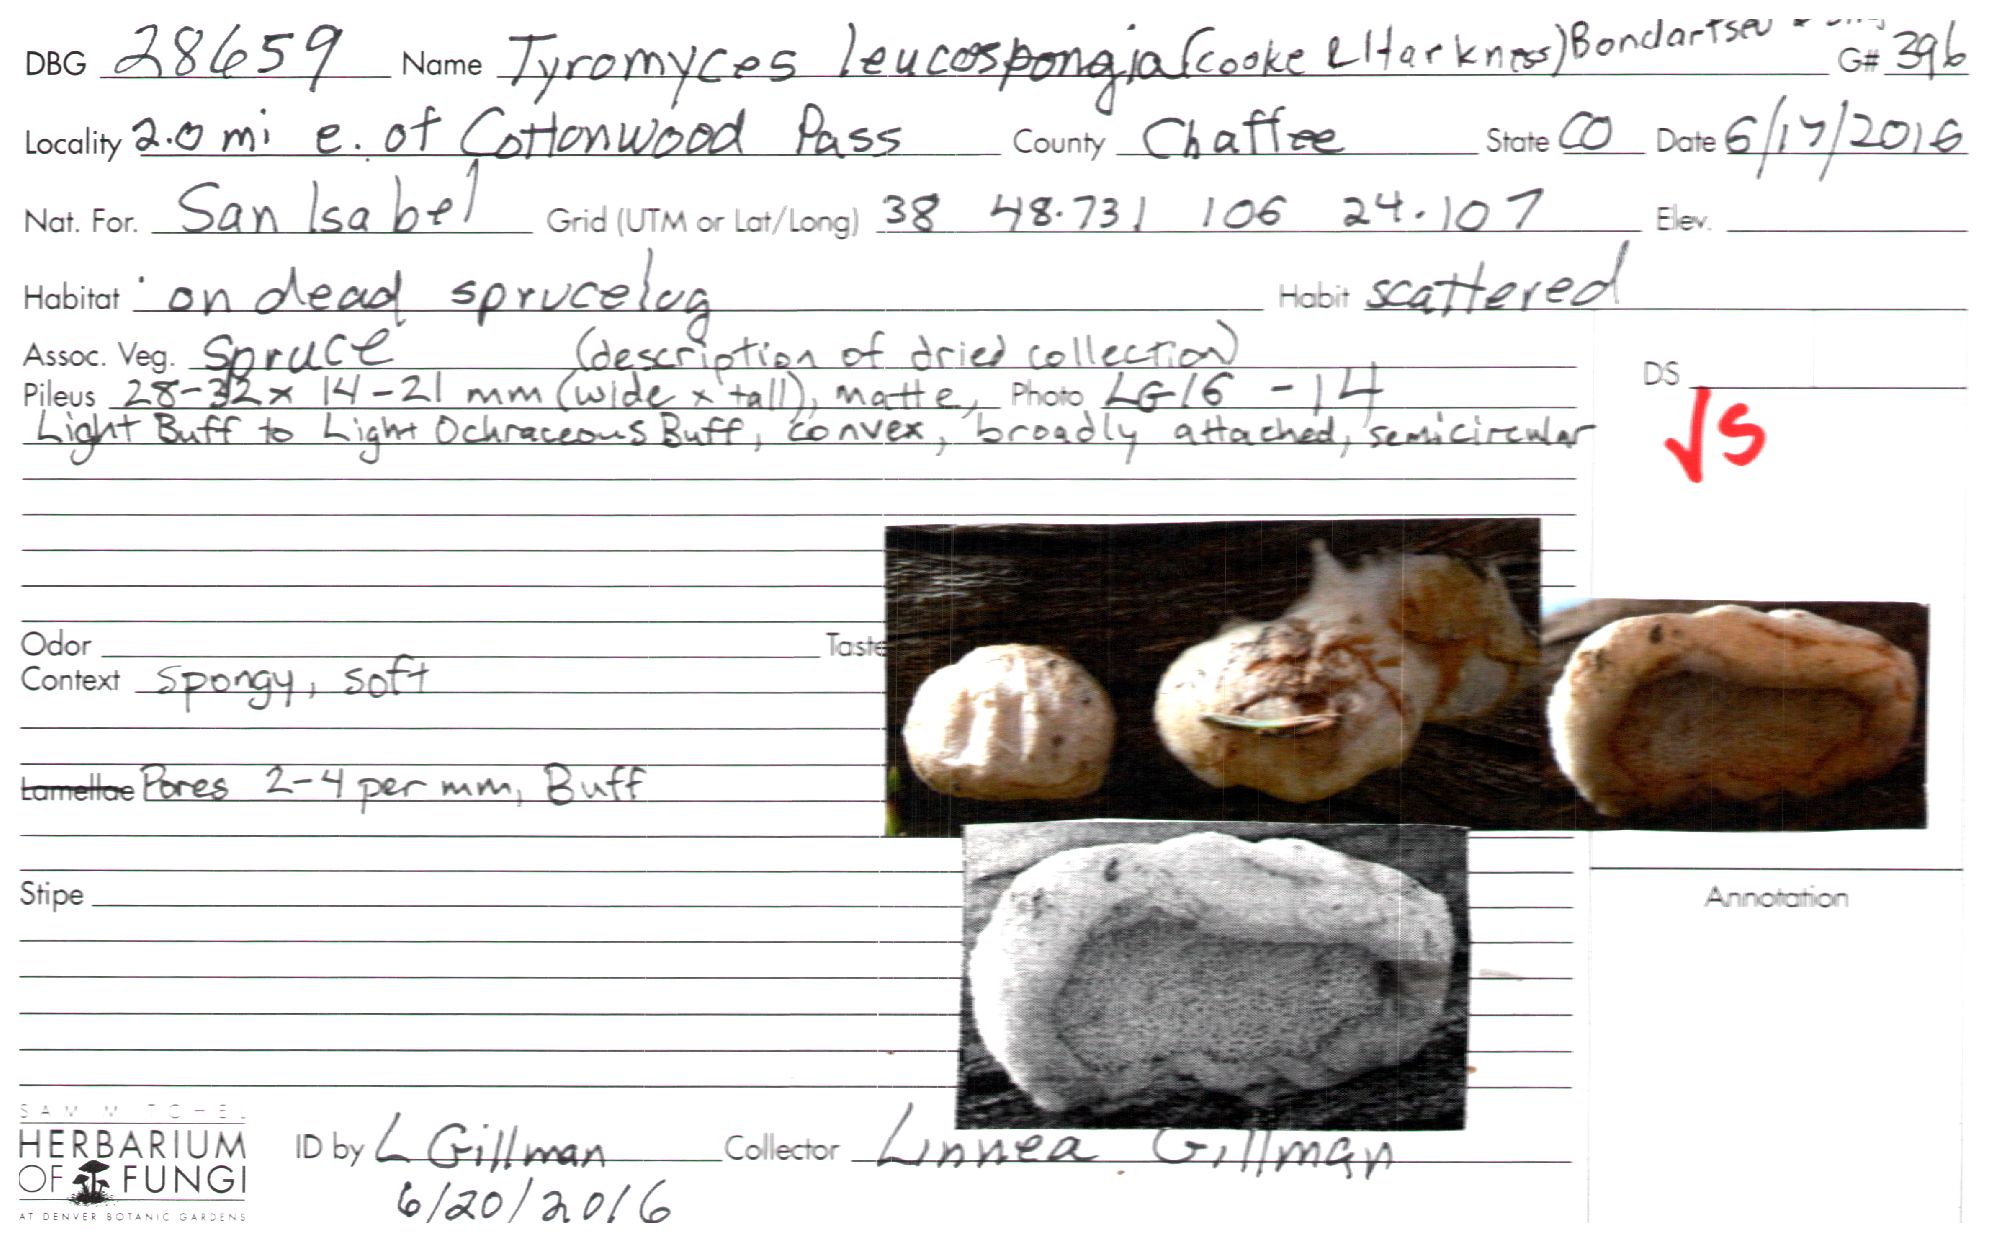 DBG 28659 Name Tyromyces leucospongia (Cooke & Harkness) Bondartsev &
G# 396
Locality 2.0 mi e. of Cottonwood Pass County Chaffee State CO Date 6/17/2016
Nat. For. San Isabel Grid (UTM or Lat/Long) 38 48.731 106 24.107 Elev.
Habitat on dead spruce log Habit scattered
Assoc. Veg. Spruce (description of dried collection)
DS
Pileus 28-32 x 14-21 mm (wide x tall), matte, Photo LG16 -14
Light Buff to Light Ochraceous Buff, convex, broadly attached, semicircular
√S
Odor Taste
Context spongy, soft
Lamellae Pores 2-4 per mm, Buff
Stipe
Annotation
SAM MITCHEL
HERBARIUM
OF FUNGI
AT DENVER BOTANIC GARDENS
ID by L Gillman Collector Linnea Gillman
6/20/2016